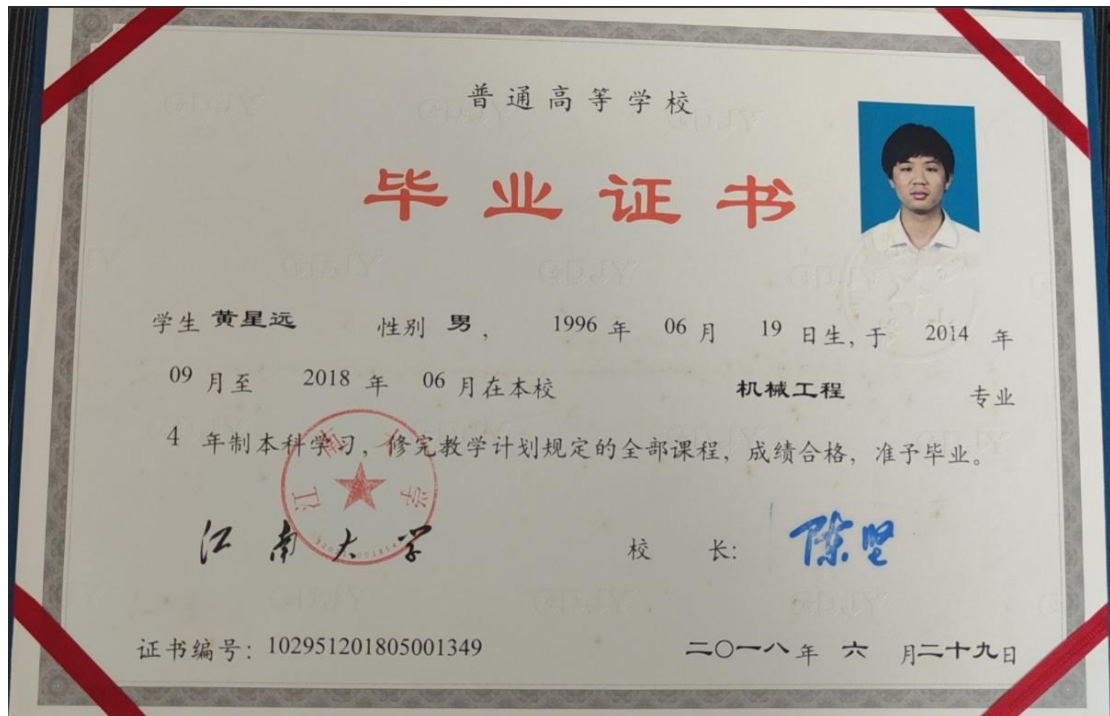 普通高等学校
毕业证书
学生 黄星远 性别 男， 1996 年 06 月 19 日生，于 2014 年
09 月至 2018 年 06 月在本校 机械工程 专业
4 年制本科学习，修完教学计划规定的全部课程，成绩合格，准予毕业。
江南大学
校 长： 陈坚
证书编号：102951201805001349
二〇一八年 六 月二十九日